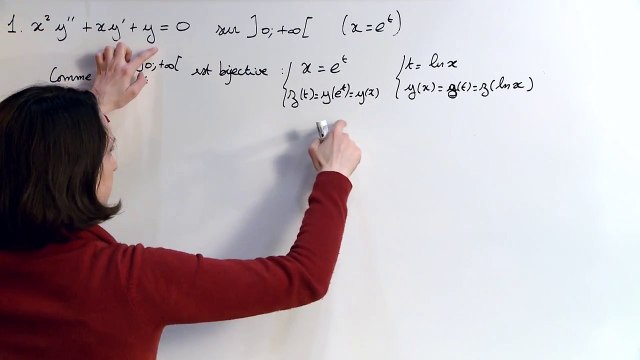 1. x² y'' + xy' + y = 0 sur ]0; +∞[ (x = e^t)
Comme ]0; +∞[ est bijective : { x = e^t { t = ln x
z(t) = y(e^t) = y(x) y(x) = z(t) = z(ln x)